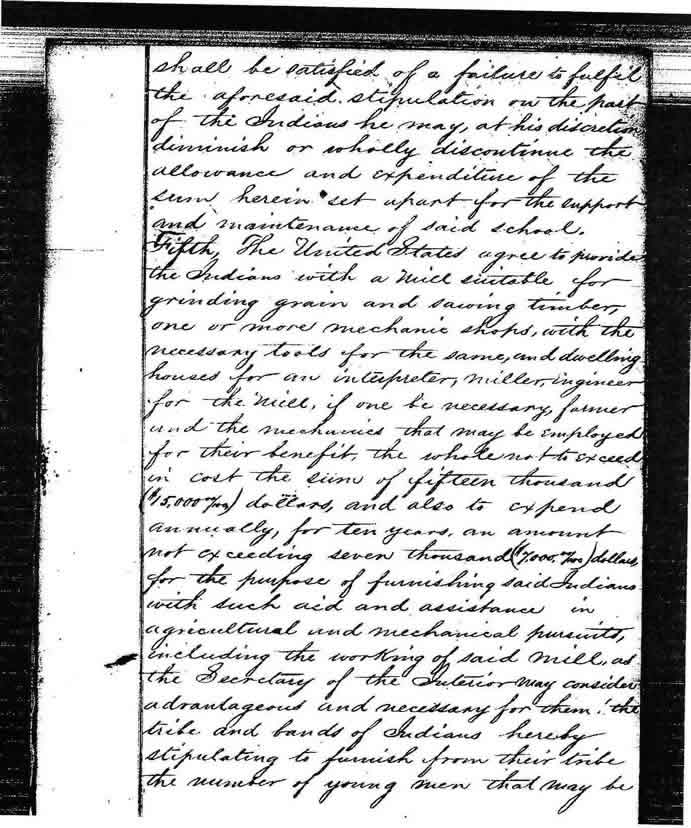 shall be satisfied of a failure to fulfil
the aforesaid stipulation on the part
of the Indians he may, at his discretion
diminish or wholly discontinue the
allowance and expenditure of the
sum herein set apart for the support
and maintenance of said school.
Fifth, The United States agree to provide
the Indians with a Mill suitable for
grinding grain and sawing timber,
one or more mechanic shops, with the
necessary tools for the same, and dwelling
houses for an interpreter, miller, engineer
for the Mill, if one be necessary, farmer
and the mechanics that may be employed
for their benefit, the whole not to exceed
in cost the sum of fifteen thousand
($15,000 00/100) dollars, and also to expend
annually, for ten years, an amount
not exceeding seven thousand ($7,000. 00/100) dollars,
for the purpose of furnishing said Indians
with such aid and assistance in
agricultural and mechanical pursuits,
including the working of said Mill, as
the Secretary of the Interior may consider
advantageous and necessary for them: the
tribe and bands of Indians hereby
stipulating to furnish from their tribe
the number of young men that may be